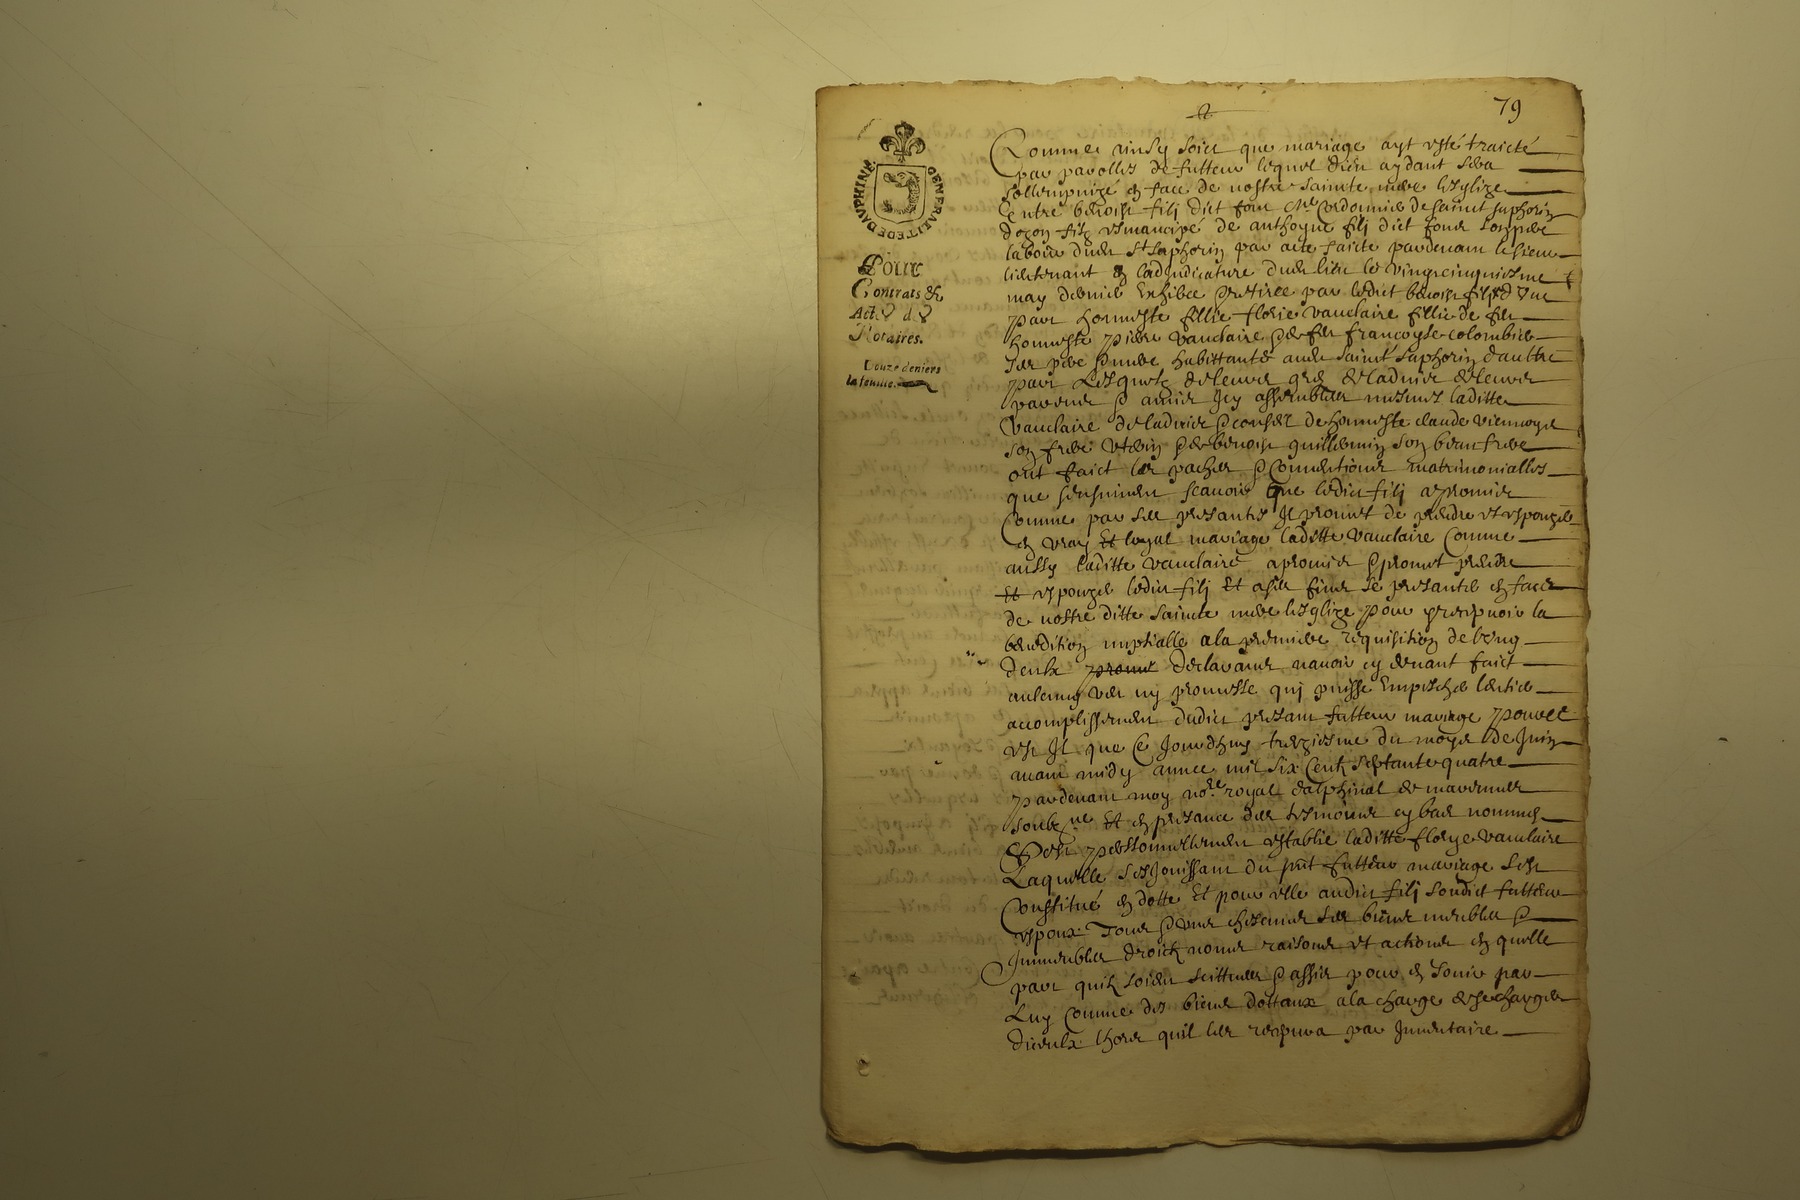 79
GENERALITE DE DAUPHINE
Pour
Contrats &
Actes de
Notaires.
Douze deniers
la feuille.
Comme ainsy soict que mariage ayt esté traicté
par parolles de futteur lequel dieu aydant sera
sollempnizé en face de nostre sainte mere lesglize
Entre benoist filj dict four cordonnier de sainct saphorin
dozon filz esmancipé de anthoyne filj dict four son pere
labour dud St saphorin par acte faicte pardevant le sieur
lieutenant en la judicature dud lieu le vingt cinquiesme
may dernier Exhibee retiree par ledict benoist filj d'une
part honneste fillie florie vauclaire fillie de feu
honneste pierre vauclaire de feu francoyse colombier
ses pere mere habittante aud saint saphorin dautre
part Lesquelz de leurs grez de ladvis de leurs
parens amis Icy assemblés mesmes laditte
Vauclaire de ladvis conseil de honneste claude
son frere uterin de benoist guillermin son beau frere
ont faict les paches conventions matrimonialles
que sensuivent scavoir que ledict filj a promis
Comme par ses presantes Il promet de prendre et espouzer
en vray Et loyal mariage laditte Vauclaire Comme
aussy laditte vauclaire a promis promet prendre
Et espouzer ledict filj Et a ses fins se presanter en face
de nostre ditte sainte mere lesglize pour recepvoir la
benedition nuptialle a la premiere requisition de lung
deulx promet declarans navoir cy devant faict
aulcung ny promesse quj puisse Empescher lentier
accomplissement dudict presant futteur mariage pource
est Il que Ce Jourdhuy treziesme du moys de Juin
avant midy annee mil six Cent septante quatre
pardevant moy no.re royal dalphinal de marennes
soubz.ne Et en presance des tesmoins cy bas nommés
Sest personnellement establie laditte florye vauclaire
Laquelle sesjouissant du pnt futteur mariage sest
Constitué en dotte Et pour elle audict filj sondict futteur
espoux Tous chescuns ses biens meubles
Immeubles droictz noms raisons et actions en quelle
part quilz soient scittues assis pour en Jouir par
Luy Comme des biens dottaux a la charge de se charger
diceulx lhors quil les recepvra par Inventaire